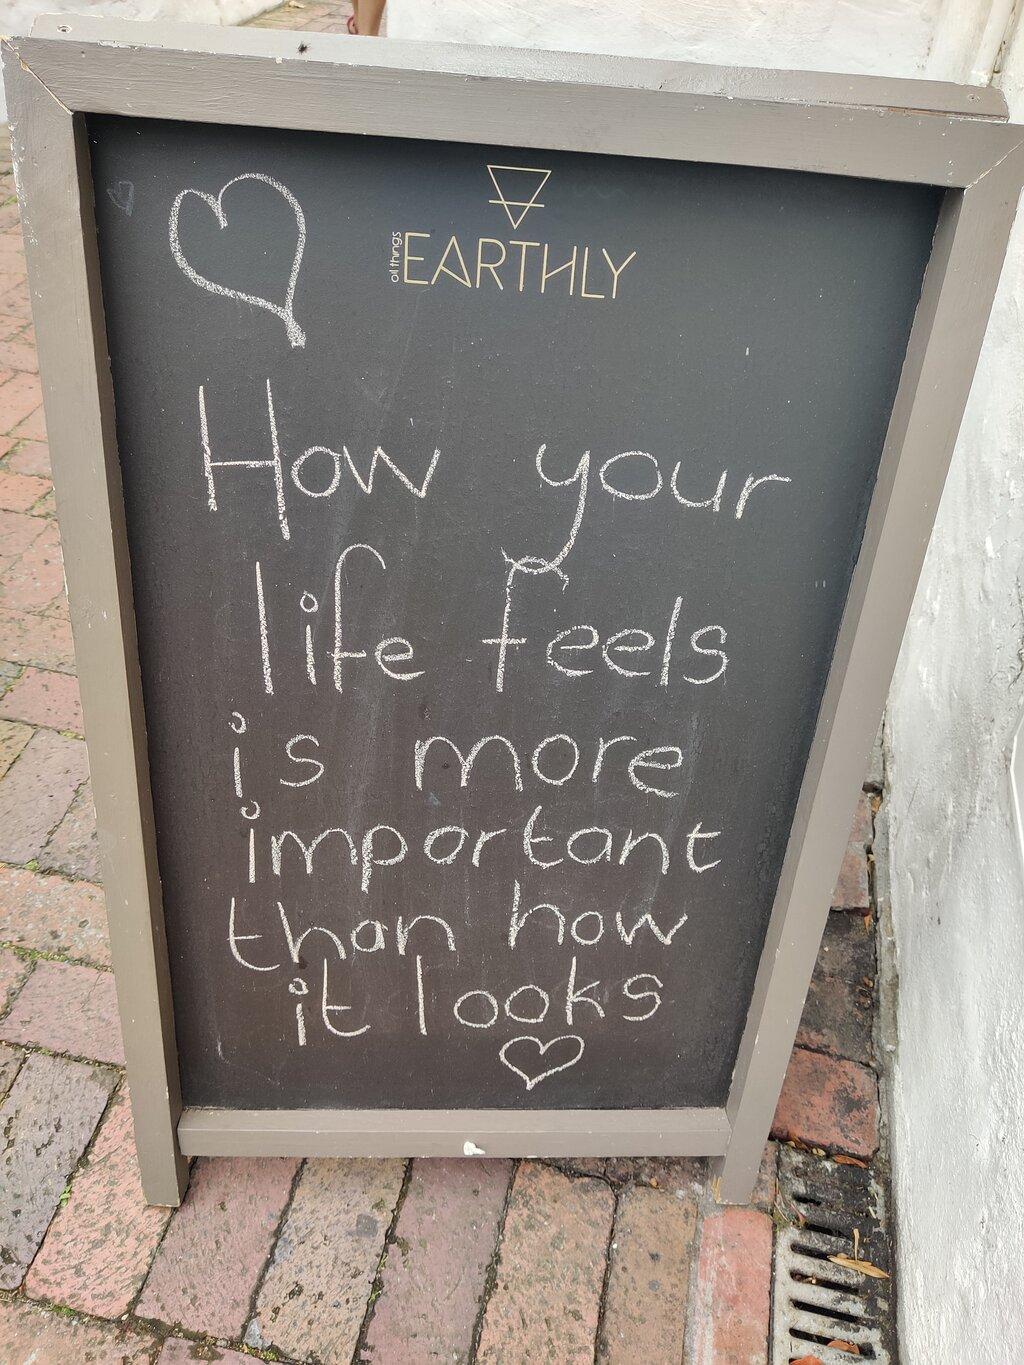 all things EARTHLY
How your
life feels
is more
important
than how
it looks